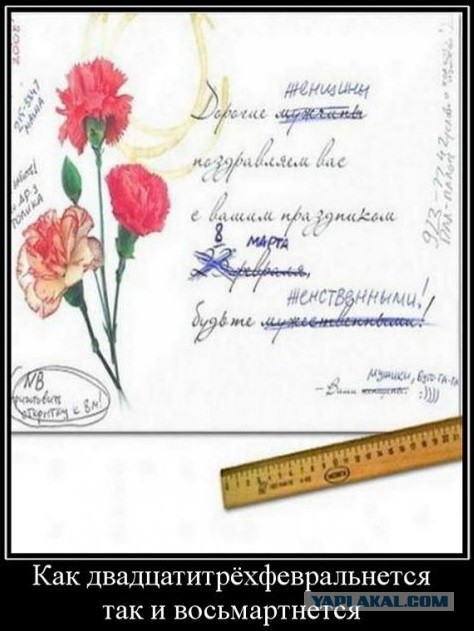 2008
215-3547
МАША
ЖЕНЩИНЫ
Дорогие мужчины
поздравляем вас
с вашим праздником
8 МАРТА
23 февраля,
ЖЕНСТВЕННЫМИ!
будьте мужественными!
МУЖИКИ, БУГО-ГА-ГА
– Ваши женщины. :))))
NB
открытку к 8м!
Как двадцатитрёхфевральнется
так и восьмартнется
YAPLAKAL.COM